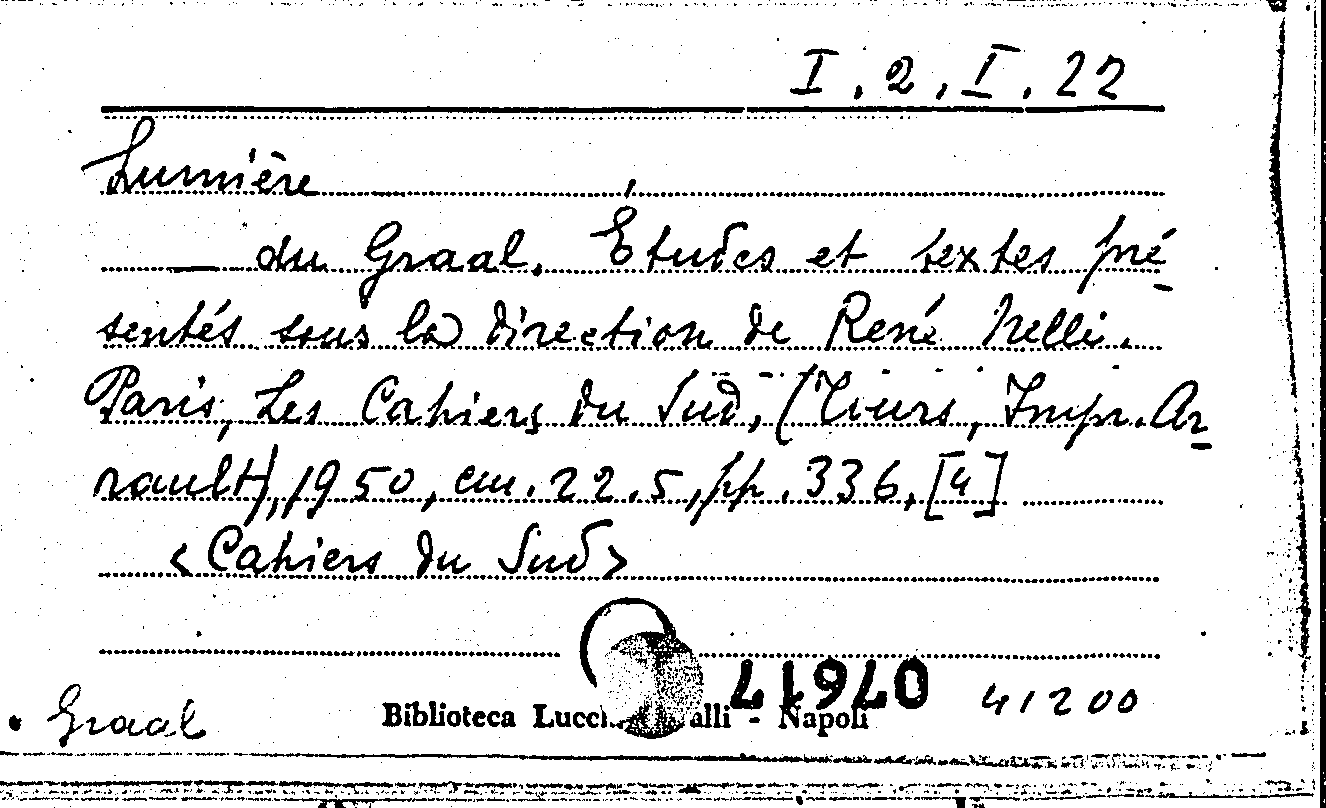 I. 2. I. 22
Lumière
— du Graal. Études et textes pré-
sentés sous la direction de René Nelli.
Paris, Les Cahiers du Sud, (Tours, Impr. Ar-
rault), 1950, cm. 22.5, pp. 336, [4]
<Cahiers du Sud>
41200
• Graal
Biblioteca - Napoli